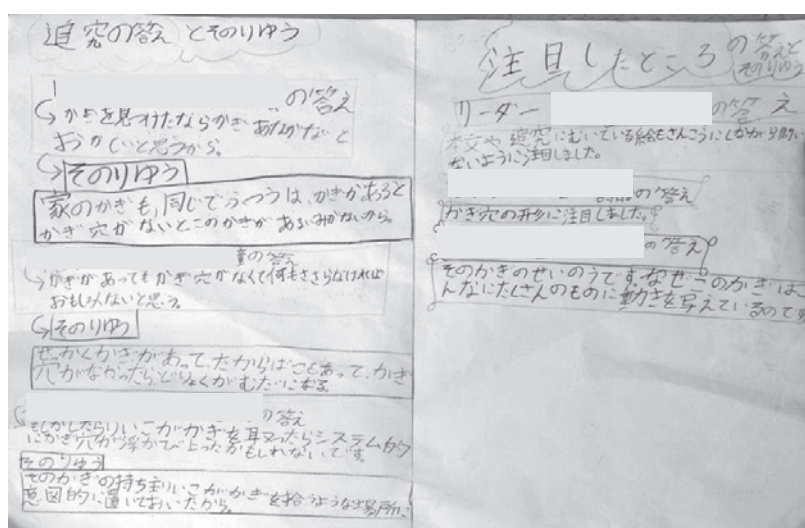 追究の答えとそのりゆう
の答え
かぎを見つけたならかぎあながないと
おかしいと思うから。
そのりゆう
家のかぎも、同じでふつうは、かぎがあると
かぎ穴がないとこのかぎがあるいみがないから。
の答え
かぎがあってもかぎ穴がなくて何もささらなければ
おもしろくないと思う。
そのりゆう
せっかくかぎがあって、たからばこもあって、かぎ
穴がなかったらどりょくがむだになる
の答え
もしかしたらりいこがかぎを取ったらシステム的
にかぎ穴が浮かび上ったかもしれないです。
そのりゆう
そのかぎの持ち主りいこがかぎを拾うような場所に
意図的に置いておいたから。
注目したところの答えと
そのりゆう
リーダー の答え
本文や追究にむいている絵もさんこうにしながら
ないように注目しました。
の答え
かぎ穴の形に注目しました。
の答え
そのかぎのせいのうです。なぜこのかぎはこ
んなにたくさんのものに動きを写えているのです